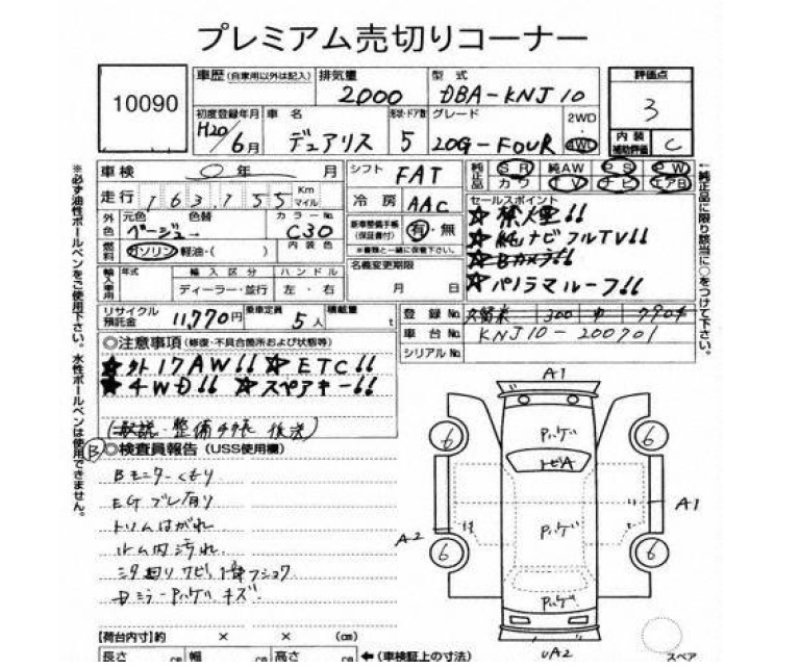 プレミアム売切りコーナー
10090
車歴 (自家用以外は記入) 排気量 型式 評価点
2000 DBA-KNJ10 3
初度登録年月 車名 形状・ドア数 グレード 2WD
H20/6月 デュアリス 5 20G-FOUR 4WD
内装補助評価 C
車検 0年 月 シフト FAT 純正品 SR 純AW PS PW
カワ TV ナビ エアB
走行 163,755 Km マイル 冷房 AAC セールスポイント
外色 元色 色替 カラーNo.
ベージュ→ C30 新車整備手帳(保証書付) 有・無
☆禁煙!!
☆純ナビフルTV!!
☆Bカメラ!!
☆パノラマルーフ!!
燃料 ガソリン 軽油・( ) 内装色 ※書類と一緒に保管下さい。
輸入車用 年式 輸入区分 ハンドル 名義変更期限
ディーラー・並行 左・右 月 日
リサイクル預託金 11,770円 乗車定員 5人 積載量 t
登録No. 久留米 300 7904
車台No. KNJ10-200701
シリアルNo.
◎注意事項 (修復・不具合箇所および状態等)
☆外17AW!! ☆ETC!!
☆4WD!! ☆スペアキー!!
(取説・整備手帳 後送)
B
◎検査員報告 (USS使用欄)
Bモニターくもり
EGブレ有り
トリムはがれ
ルーム内汚れ
下廻りサビ
Dミラー Pハゲ キズ
【荷台内寸】約 × × (cm)
長さ cm 幅 cm 高さ cm ←(車検証上の寸法)
※必ず油性ボールペンをご使用下さい。水性ボールペンは使用できません。
↑純正品に限り該当に○をつけて下さい。
A1
Pハゲ
6 6
トビA
A1
Pハゲ
A2
6 6
Pハゲ
UA2
スペア